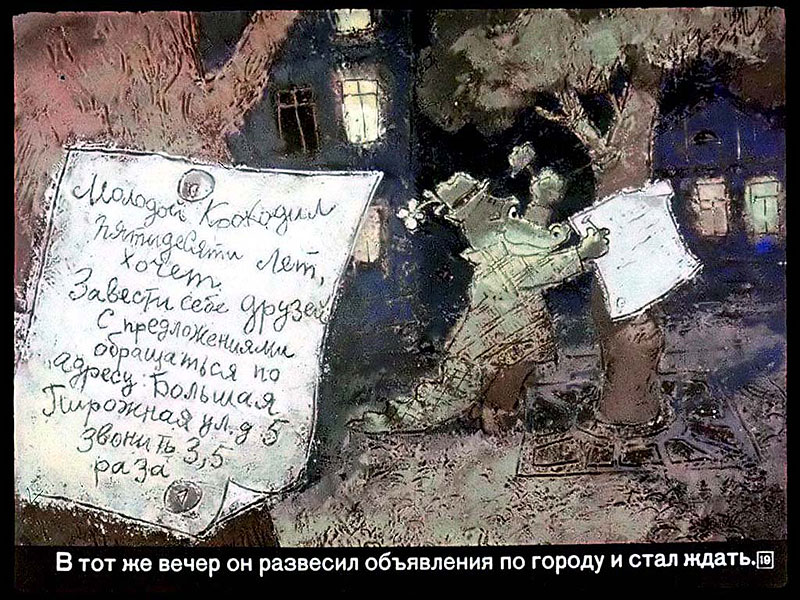 Молодой Крокодил
пятидесяти лет,
хочет
Завести себе друзей
С предложениями
обращаться по
адресу: Большая
Пирожная ул. д 5
Звонить 3,5
раза
В тот же вечер он развесил объявления по городу и стал ждать. 19